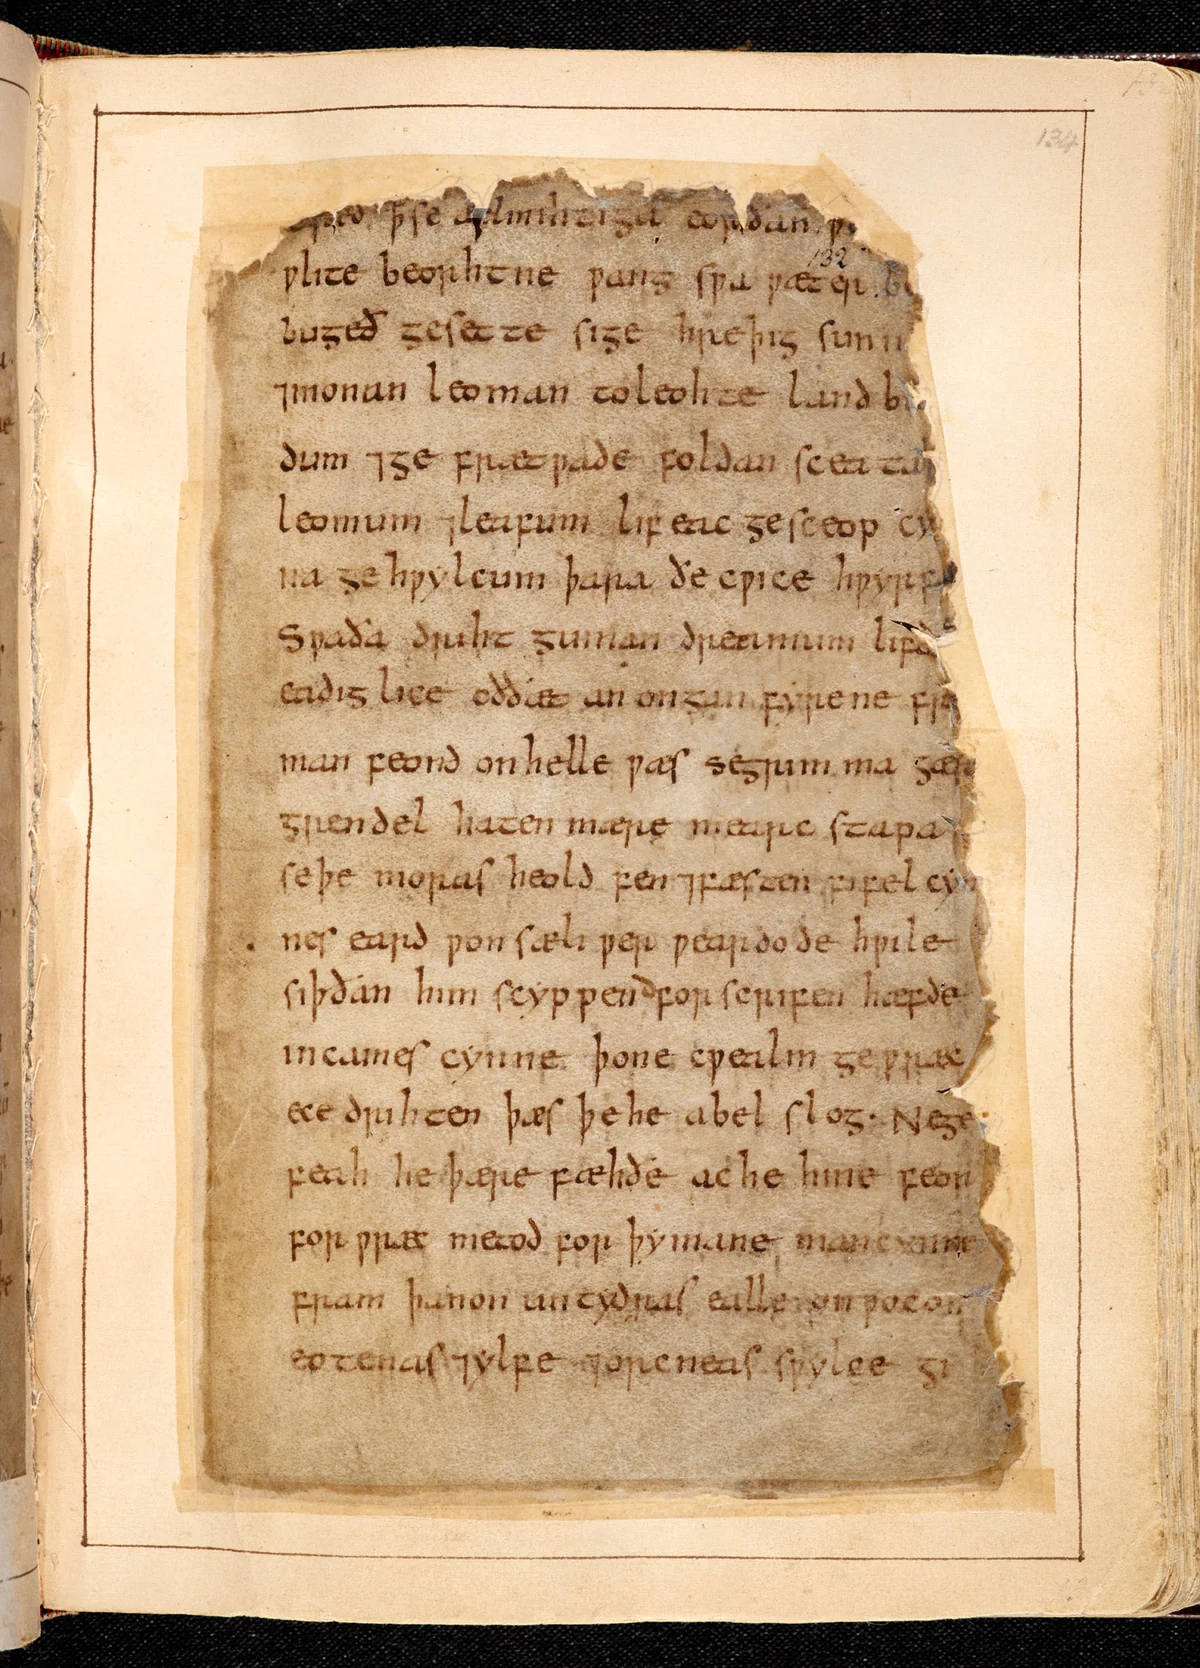 134
132
cƿeð ꝥ se ælmihtiga eorðan
ƿlite beorhtne ƿang sƿa ƿæter be
bugeð gesette sige hreþig sunn
⁊ monan leoman to leohte land b
dum ⁊ ge frætƿade foldan sceata
leomum ⁊ leafum lif eac gesceop cy
na ge hƿylcum þara ðe cƿice hƿyrf
Sƿa ða driht guman dreamum lifd
eadig lice oððæt an ongan fyrene fre
man feond on helle ƿæs se grimma gæs
grendel haten mære mearc stapa
se þe moras heold fen ⁊ fæsten fifel cyn
nes eard ƿon sæli ƿer ƿeardode hƿile
siþðan him scyppend for scrifen hæfde
in caines cynne þone cƿealm ge ƿræc
ece drihten þæs þe he abel slog· Ne ge
feah he þære fæhðe ac he hine feor
for ƿræc metod for þy mane man cynne
fram þanon untydras ealle on ƿocon
eotenas ⁊ ylfe ⁊ orcneas sƿylce gi